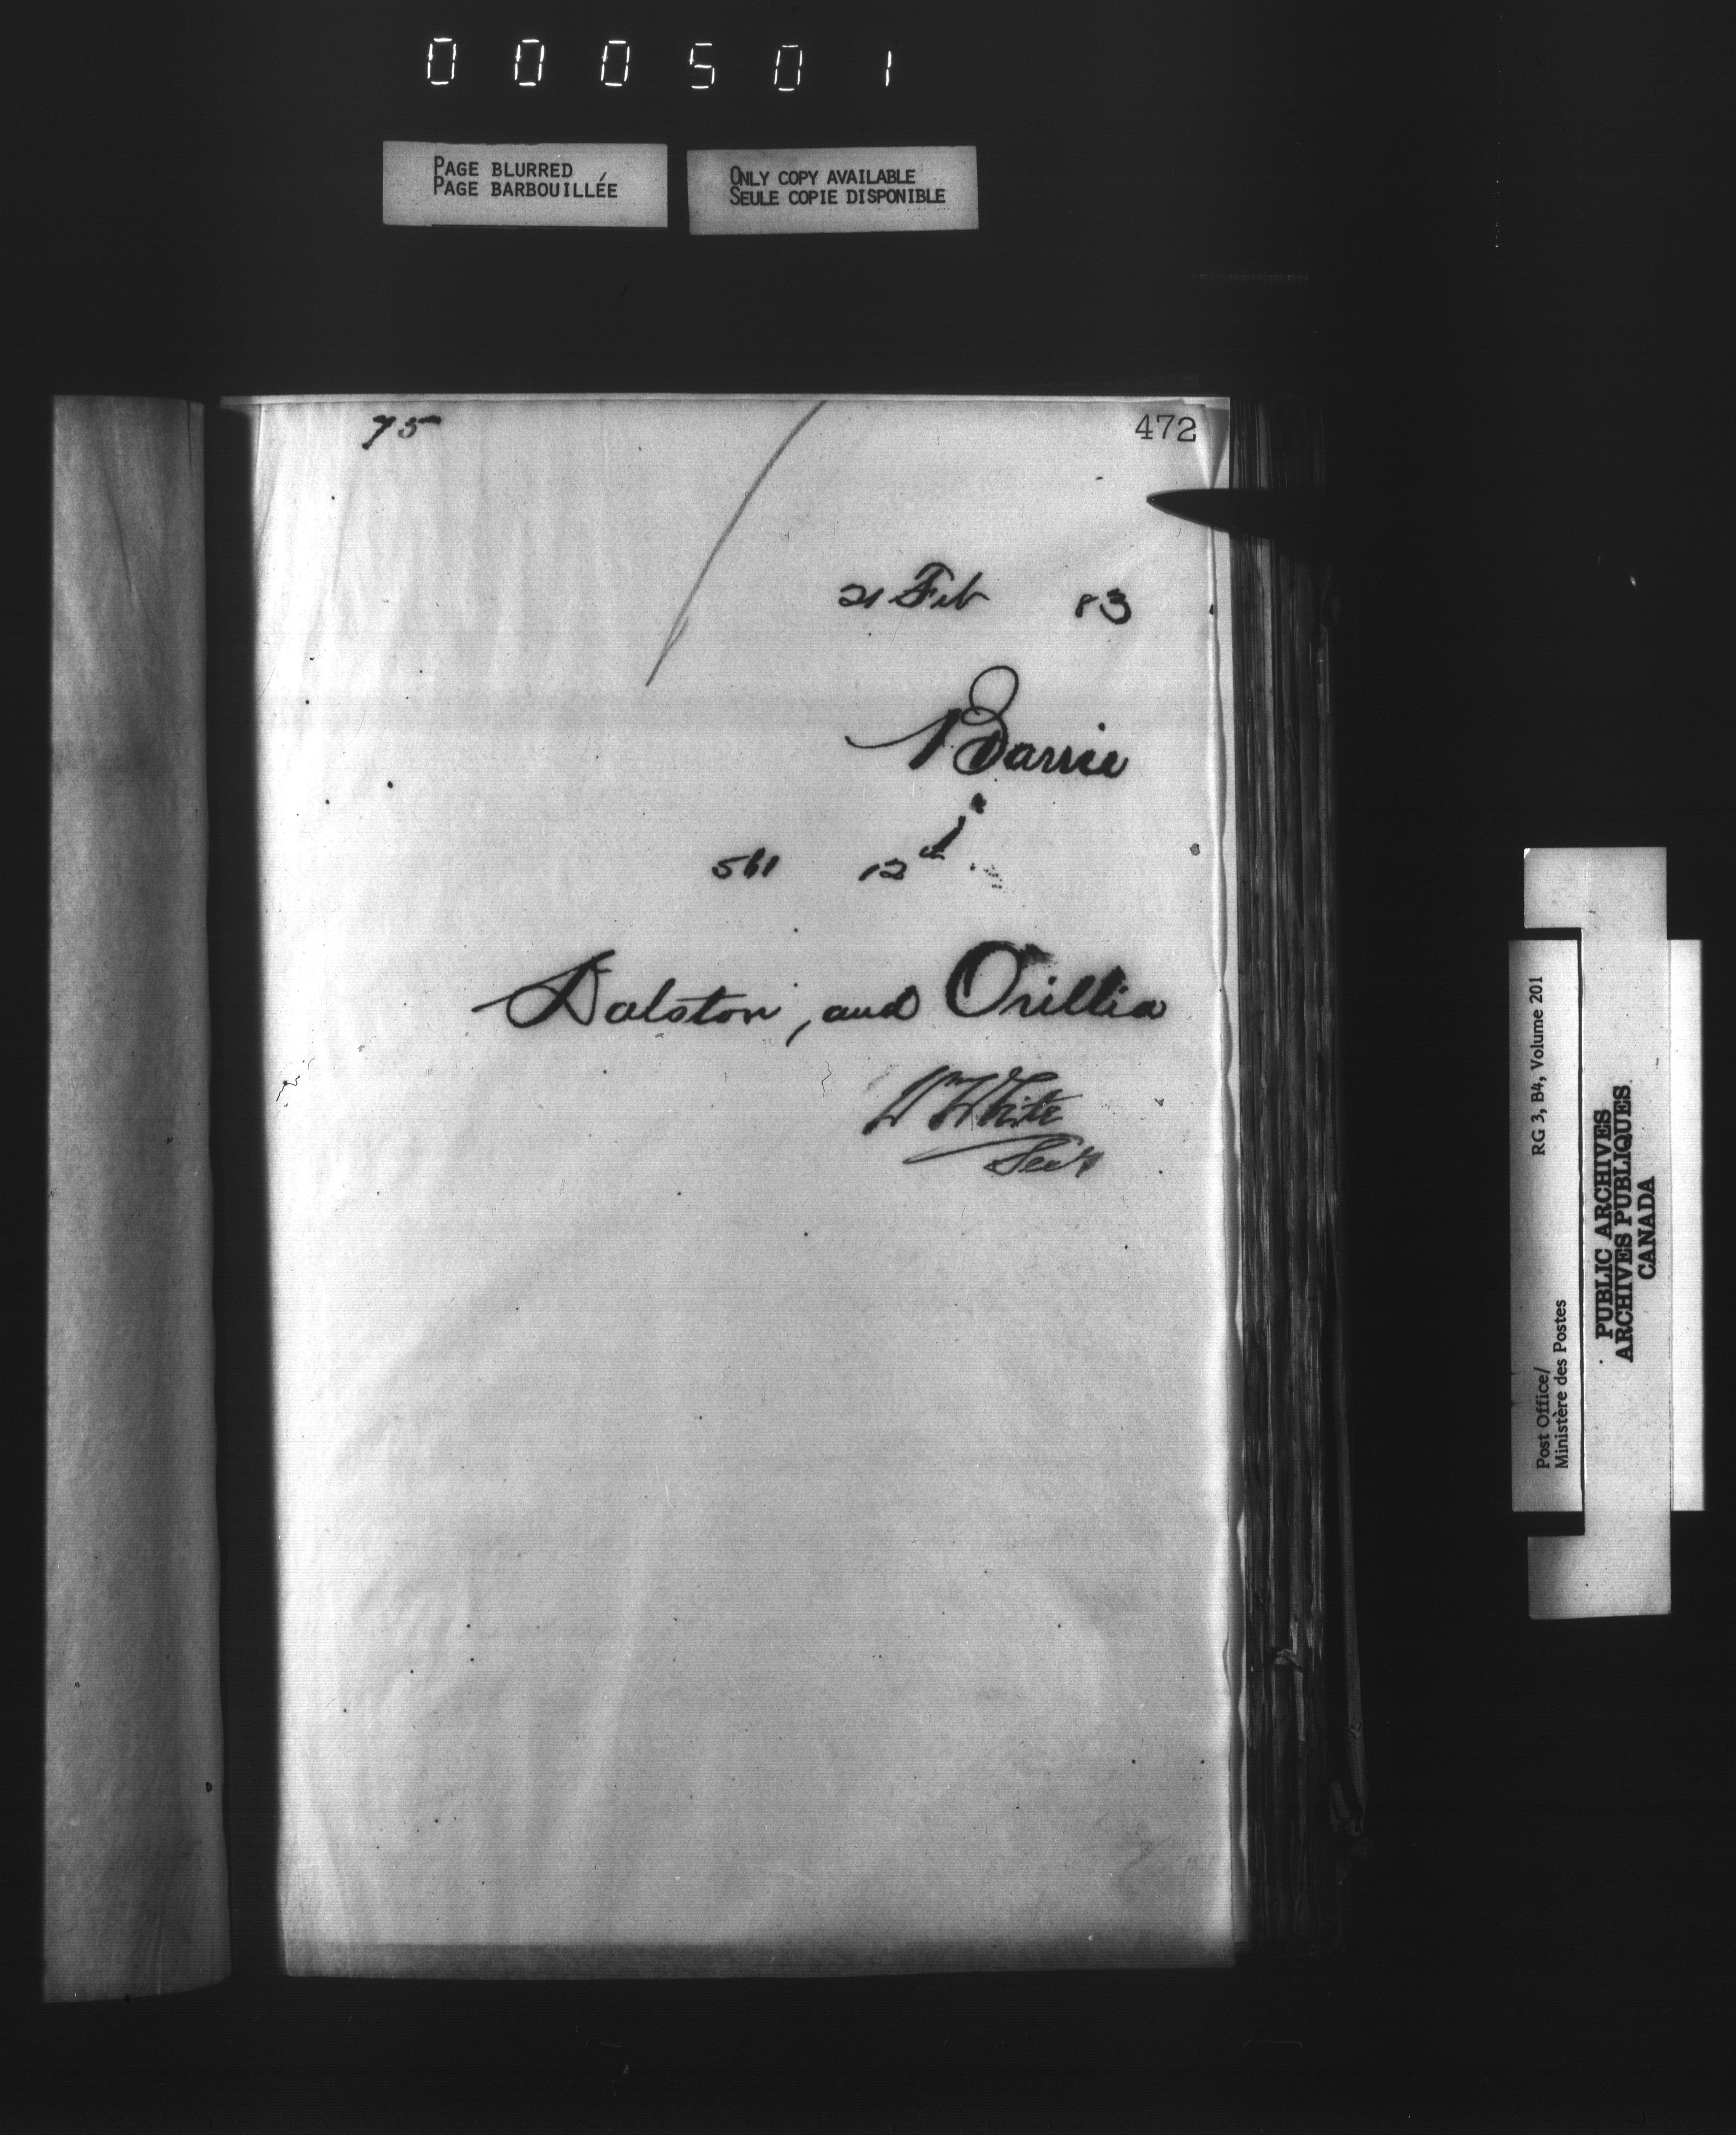 000501
PAGE BLURRED
PAGE BARBOUILLÉE
ONLY COPY AVAILABLE
SEULE COPIE DISPONIBLE
75
472
21 Feb 83
Barrie
561 12th
Dalston, and Orillia
W White
Secy
RG 3, B4, Volume 201
Post Office/
Ministère des Postes
PUBLIC ARCHIVES
ARCHIVES PUBLIQUES
CANADA